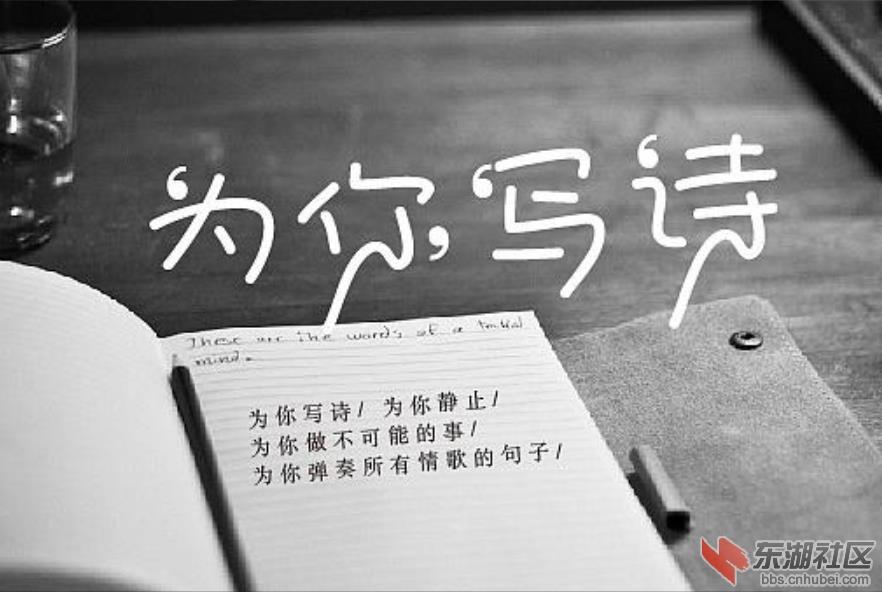 为你写诗
These are the words of a
mind.
为你写诗/ 为你静止/
为你做不可能的事/
为你弹奏所有情歌的句子/
东湖社区
bbs.cnhubei.com